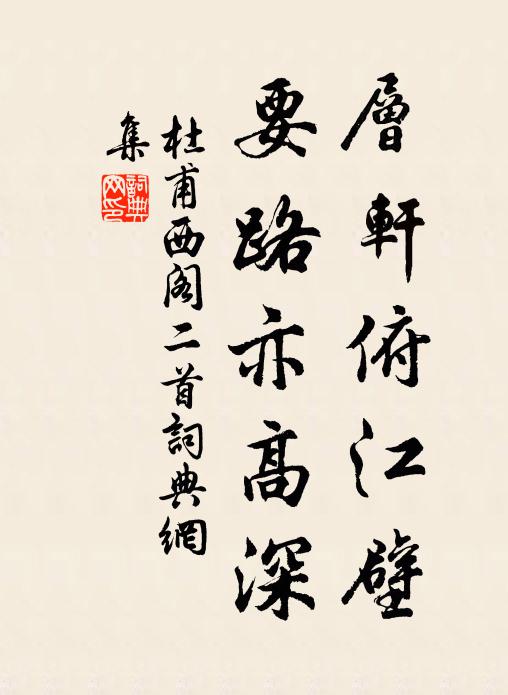 層軒俯江壁
要路亦高深
杜甫西阁二首詞典網
集
詞典網印